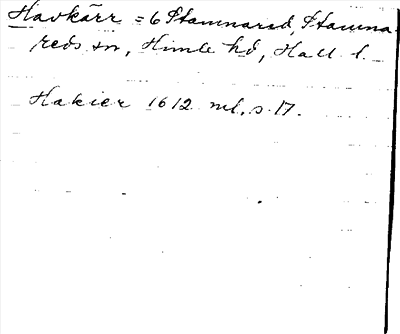 Havkärr = 6 Stamnared, Stamna-
reds sn, Himle hd, Hall. l.
Hakier 1612 ml, s. 17.